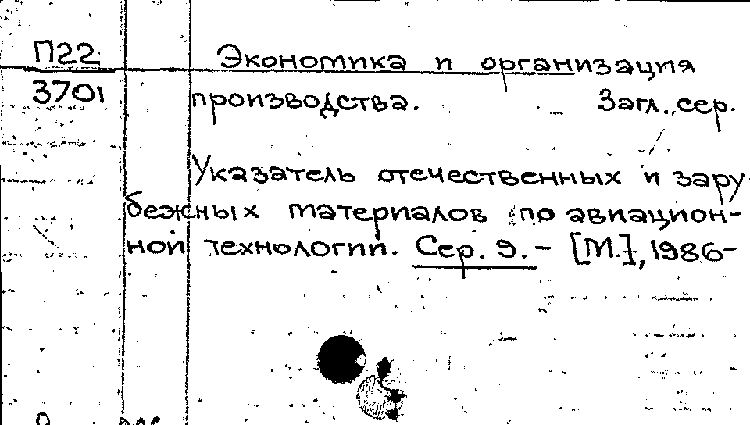 П22 Экономика и организация
3701 производства. Загл. сер.
Указатель отечественных и зару-
бежных материалов по авиацион-
ной технологии. Сер. 9. – [М.], 1986-